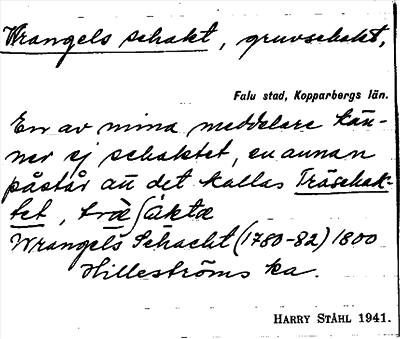 Wrangels schakt, gruvschakt,
Falu stad, Kopparbergs län.
En av mina meddelare kän-
ner ej schaktet, en annan
påstår att det kallas Träschak-
tet, trä∫áktə
Wrangels Schacht (1780-82) 1800
Hilleströms ka.
HARRY STÅHL 1941.